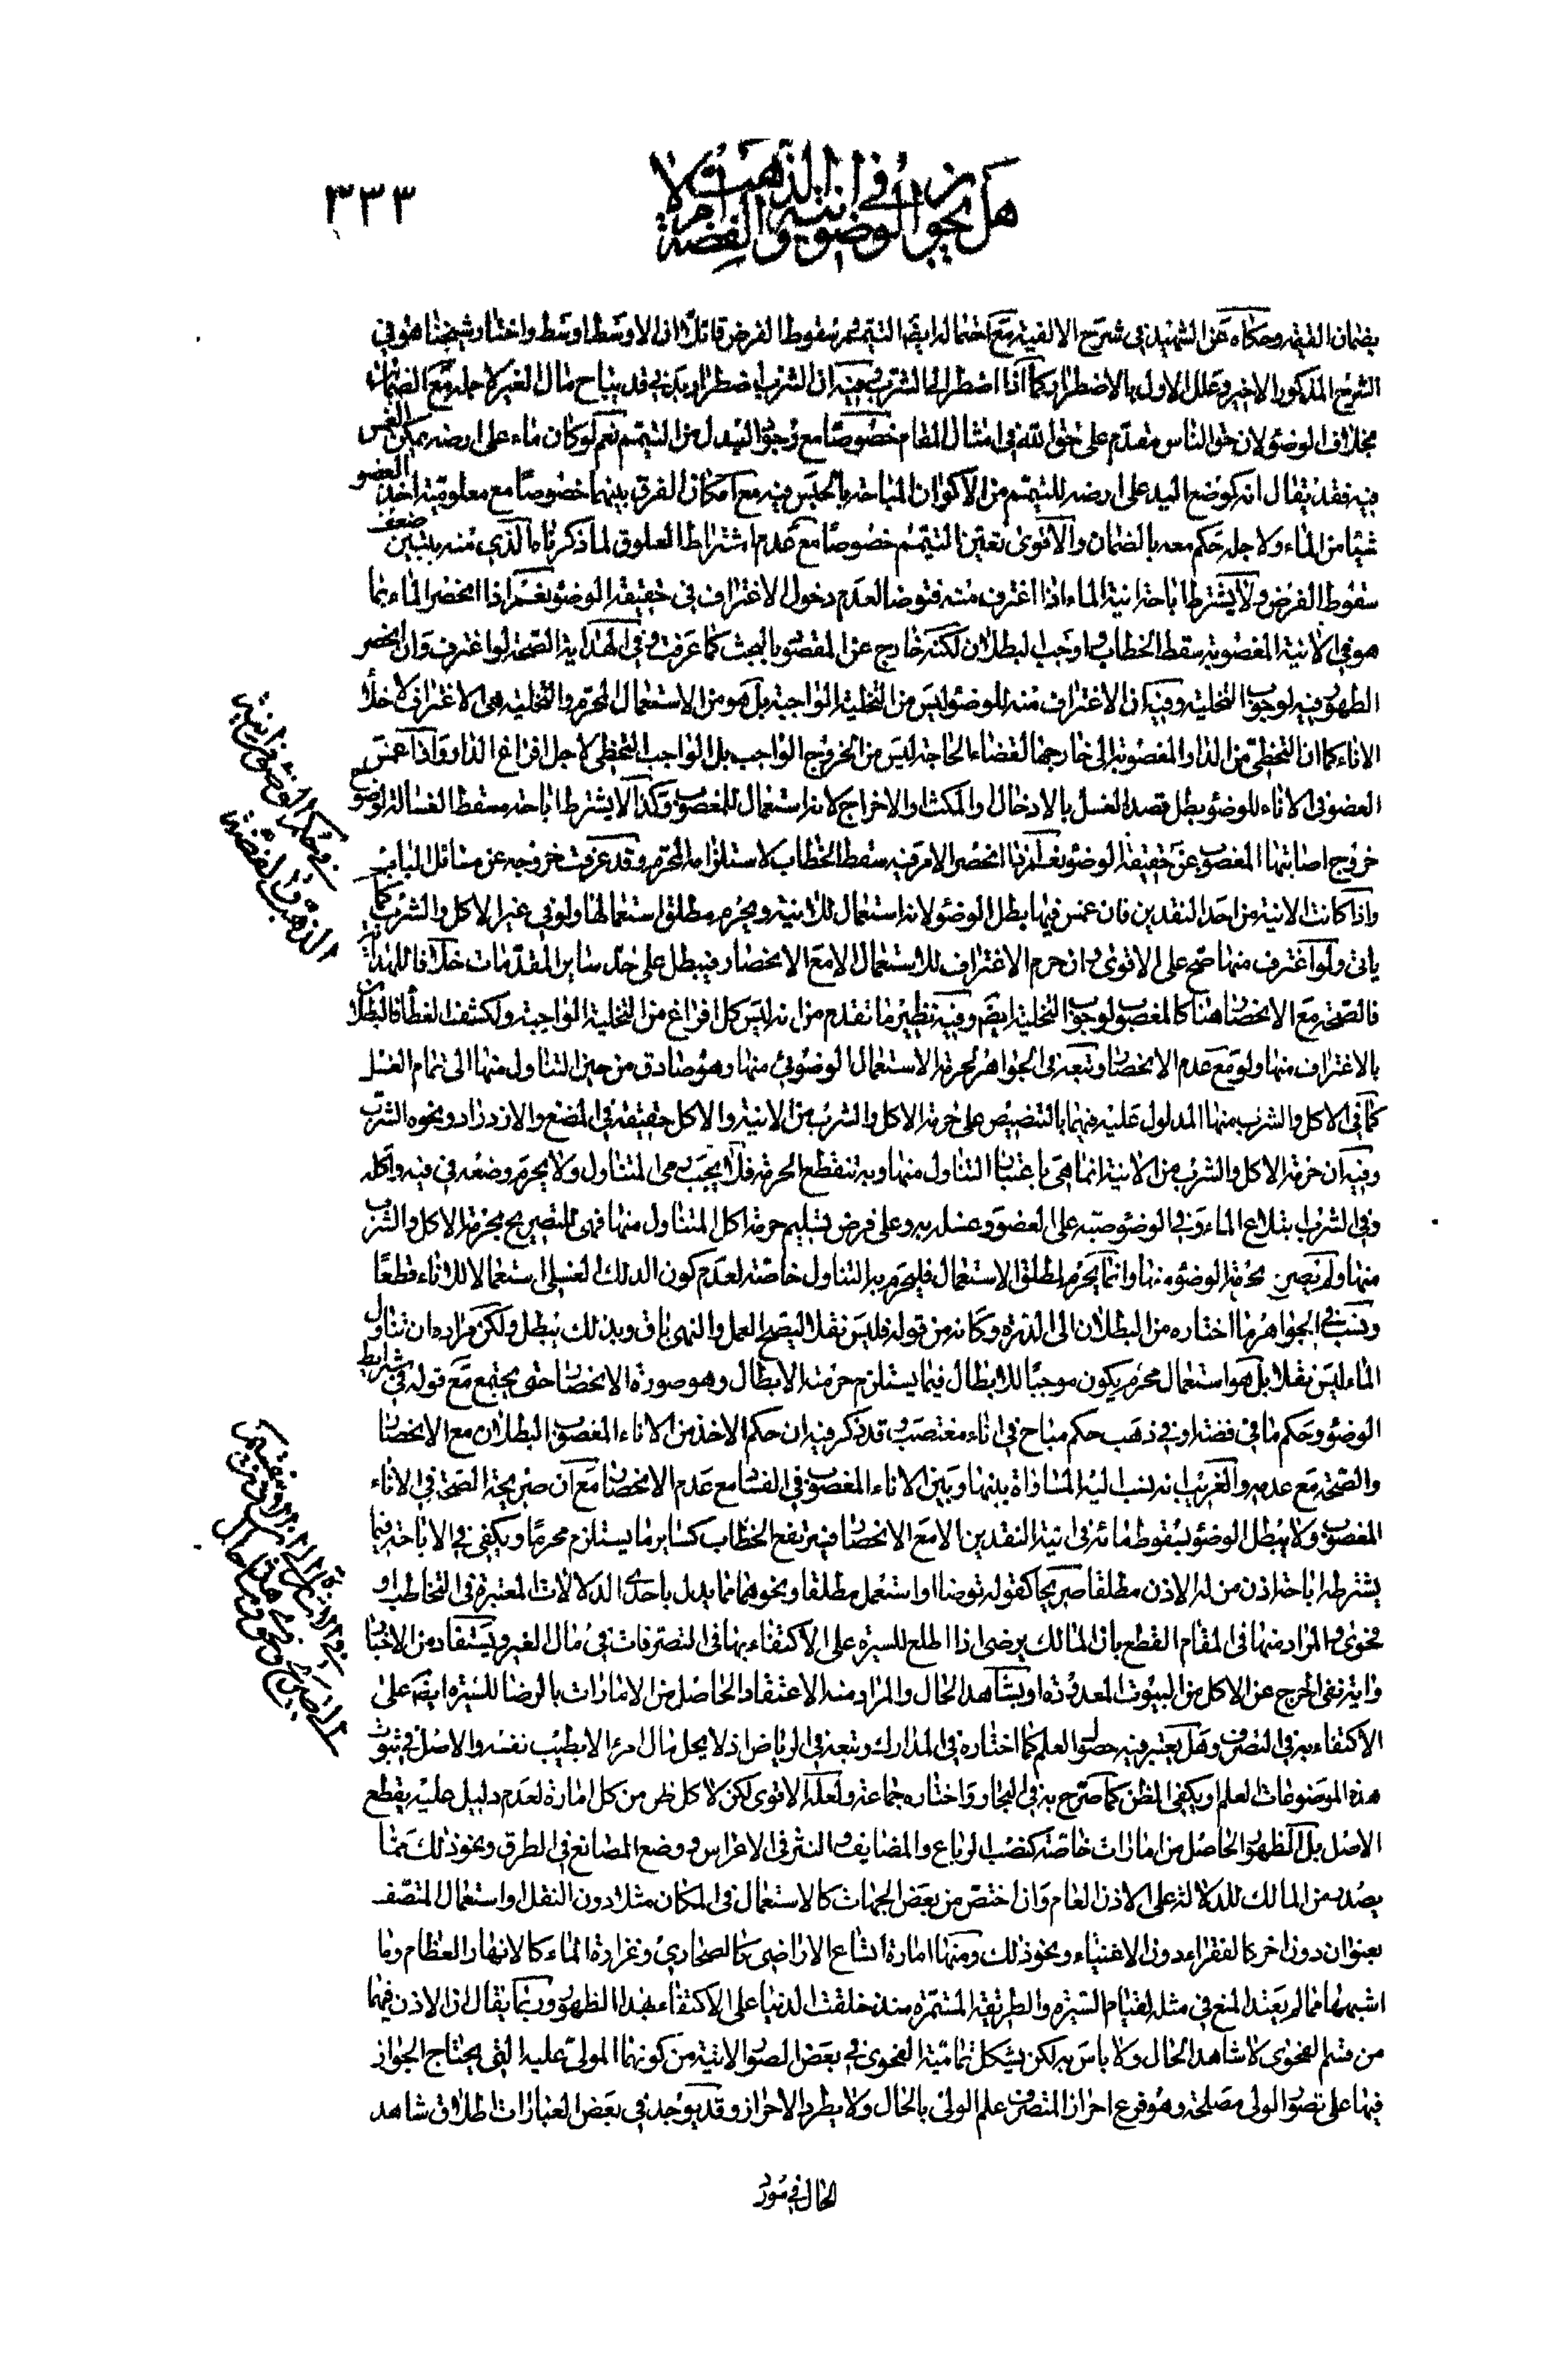 هل يجوز الوضوء في انية الذهب والفضة ام لا
٣٣٣
بضمان القيمة وحكاه عن الشهيد في شرح الالفية مع احتماله ايضا التيمم ثم سقوط الفرض قائلا ان الاوسط اوسط واختار شيخنا هو في
الشرح المذكور الاخير وعلل الاول بالاضطرار كما اذا اضطر الى الشرب وفيه ان الشرب اضطرار بدني قد يباح مال الغير لاجله مع الضمان
بخلاف الوضوء لان حق الناس مقدم على حق الله في امثال المقام خصوصا مع وجود البدل من التيمم نعم لو كان ماء على ارضه يمكن الغمس
فيه فقد يقال انه كوضع اليد على ارضه للتيمم من الاكوان المباحة بالحبس فيه مع امكان الفرق بينهما خصوصا مع معلومية اخذ العضو
شيئا من الماء ولاجله حكم معه بالضمان والاقوى تعين التيمم خصوصا مع عدم اشتراط العلوق لما ذكرناه الذي منه يتبين ضعف
سقوط الفرض ولا يشترط اباحة انية الماء اذا اغترف منه فتوضا لعدم دخول الاغتراف في حقيقة الوضوء نعم اذا انحصر الماء بما
هو في الانية المغصوبة سقط الخطاب واوجب البطلان لكنه خارج عن المقصود بالبحث كما عرفت وفي الهداية الصحة لو اغترف وان انحصر
الطهور فيه لوجوب التخلية وفيه ان الاغتراف منه للوضوء ليس من التخلية الواجبة بل هو من الاستعمال المحرم والتخلية هي الاغتراف لاخلاء
الاناء كما ان التخطي من الدار المغصوبة الى خارجها لقضاء الحاجة ليس من الخروج الواجب بل الواجب التخطي لاجل افراغ الدار واذا غمس
العضو في الاناء للوضوء بطل قصد الغسل بالادخال او المكث او الاخراج لانه استعمال للمغصوب وكذا لا يشترط اباحة مسقط الغسالة لوضوح
خروج اصابتها المغصوب عن حقيقة الوضوء نعم ربما انحصر الامر فيه سقط الخطاب لاستلزامه المحرم وقد عرفت خروجه عن مسائل الباب
واذا كانت الانية من احد النقدين فان غمس فيها بطل الوضوء لانه استعمال للانية ويحرم مطلق استعمالها ولو في غير الاكل والشرب كما
ياتي ولو اغترف منها صح على الاقوى وان حرم الاغتراف للاستعمال الا مع الانحصار فيبطل على حد ساير المقدمات خلافا للهداية
فالصحة مع الانحصار هنا كالمغصوب لوجوب التخلية ايضا وفيه نظير ما تقدم من انه ليس كل افراغ من التخلية الواجبة ولكشف الغطاء فالبطلان
بالاغتراف منها ولو مع عدم الانحصار وتبعه في الجواهر لحرمة الاستعمال الوضوئي منها وهو صادق من حين التناول منها الى تمام الغسل
كما في الاكل والشرب منها المدلول عليه فيهما بالتنصيص على حرمة الاكل والشرب من الانية والاكل حقيقة في المضغ والازدراد ونحوه الشرب
وفيه ان حرمة الاكل والشرب من الانية انما هي باعتبار التناول منها وبه تنقطع الحرمة فلا يجب رمي المتناول ولا يحرم وضعه في فيه واكله
وفي الشرب ابتلاع الماء وفي الوضوء صبه على العضو وغسله به وعلى فرض تسليم حرمة اكل المتناول منها فهي للتصريح بحرمة الاكل والشرب
منها ولم يصرح بحرمة الوضوء منها وانما يحرم لمطلق الاستعمال فليحرم به التناول خاصة لعدم كون الدلك الغسلي استعمالا للاناء قطعا
ونسب في الجواهر ما اختاره من البطلان الى الدرة وكانه من قوله فليس نقلا ليصح العمل والنهي باق وبذلك يبطل ولكن مراده ان تناول
الماء ليس نقلا بل هو استعمال محرم يكون موجبا للابطال فيما يستلزم حرمته الابطال وهو صورة الانحصار حتى يجتمع مع قوله في شرايط
الوضوء وحكم ما في فضة او في ذهب حكم مباح في اناء مغتصب وقد ذكر فيه ان حكم الاخذ من الاناء المغصوب البطلان مع الانحصار
والصحة مع عدمه والغريب انه نسب اليه المساواة بينها وبين الاناء المغصوب في الفساد مع عدم الانحصار مع ان صريحه الصحة في الاناء
المغصوب ولا يبطل الوضوء بسقوط مائه في انية النقدين الا مع الانحصار فيرتفع الخطاب كساير ما يستلزم محرما ويكفي في الاباحة فيما
يشترط اباحته اذن من له الاذن مطلقا صريحا كقوله توضا او استعمل مطلقا ونحوهما مما يدل باحدى الدلالات المعتبرة في التخاطب او
فحوى والمراد منها في المقام القطع بان المالك يرضى اذا اطلع للسيرة على الاكتفاء بها في التصرفات في مال الغير ويستفاد من الاخبار
واية نفي الحرج عن الاكل من البيوت المعدودة او بشاهد الحال والمراد منه الاعتقاد الحاصل من الامارات بالرضا للسيرة ايضا على
الاكتفاء به في التصرف وهل يعتبر فيه حصول العلم كما اختاره في المدارك وتبعه في الرياض اذ لا يحل مال امرء الا بطيب نفسه والاصل في ثبوت
هذه الموضوعات العلم او يكفي الظن كما صرح به في البحار واختاره جماعة ولعله الاقوى لكن لا كل ظن من كل امارة لعدم دليل عليه يقطع
الاصل بل الظهور الحاصل من امارات خاصة كنصب الرباع والمضايف والنثر في الاعراس ووضع المصانع في الطرق ونحو ذلك مما
يصدر من المالك للدلالة على الاذن العام وان اختص من بعض الجهات كالاستعمال في المكان مثلا دون النقل او استعمال المتصف
بعنوان دون اخر كالفقراء دون الاغنياء ونحو ذلك ومنها امارة اتساع الاراضي كالصحاري وغزارة الماء كالانهار العظام وما
اشبهها مما لم يعتد المنع في مثله لقيام السيرة والطريقة المستمرة منذ خلقت الدنيا على الاكتفاء بهذا الظهور وربما يقال ان الاذن فيهما
من قسم الفحوى لا شاهد الحال ولا باس به لكن يشكل تمامية الفحوى في بعض الصور الاتية من كونهما المولى عليه التي يحتاج الجواز
فيها على تصور الولي مصلحة وهو فرع احراز المتصرف علم الولي بالحال ولا يطرد الاحراز وقد يوجد في بعض العبارات اطلاق شاهد
الحال في مورد
في حكم الوضوء من انية
الذهب والفضة